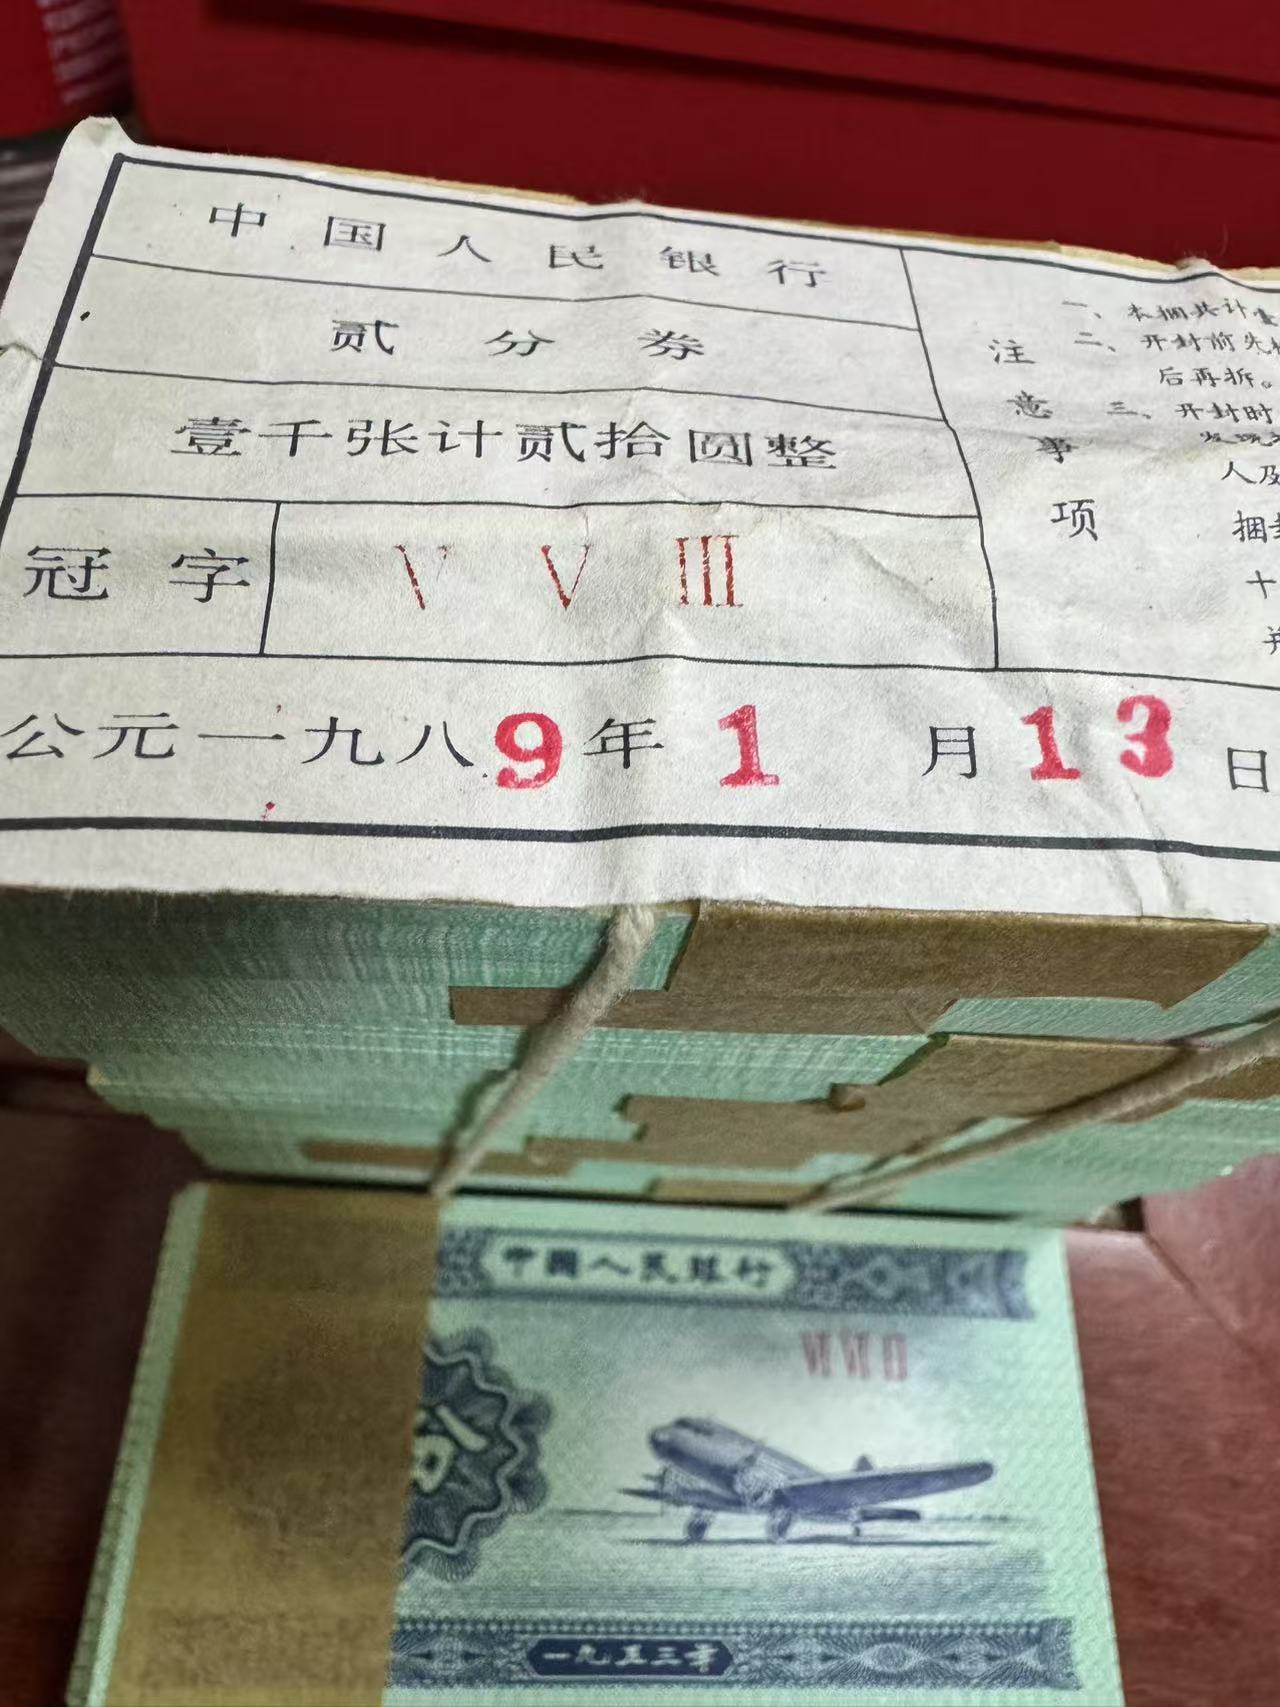 中国人民银行
贰分券
壹千张计贰拾圆整
冠字 V V III
公元一九八9年1月13日
注意事项
一、本捆共计壹
二、开封前先
后再拆。
三、开封时
人及
捆
十
中國人民銀行
一九五三年